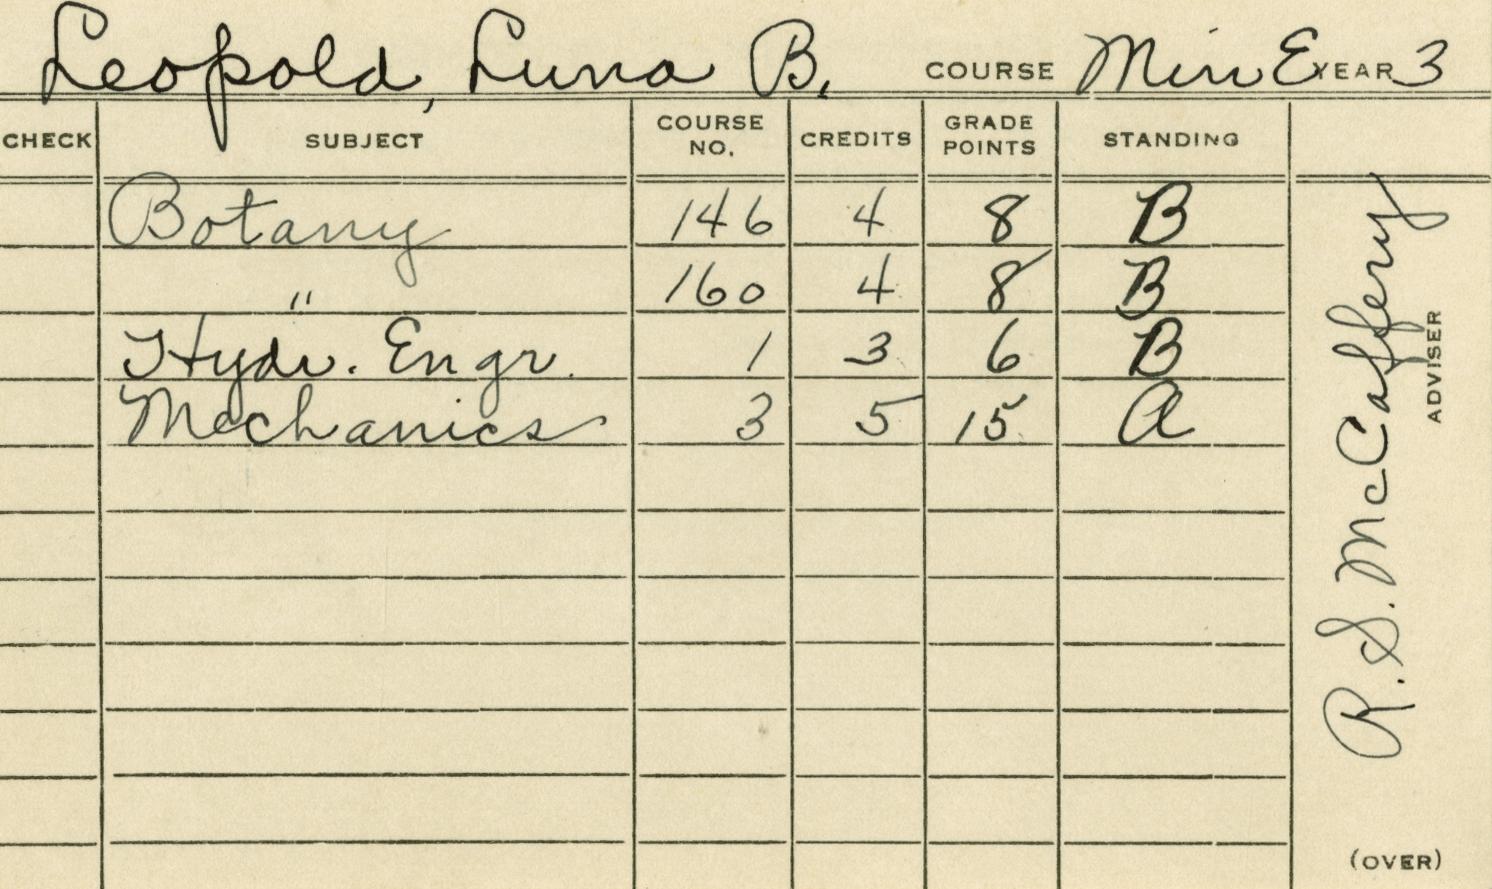 Leopold, Luna B. COURSE Min E YEAR 3
CHECK SUBJECT COURSE NO. CREDITS GRADE POINTS STANDING
Botany 146 4 8 B
" 160 4 8 B
Hydr. Engr. 1 3 6 B
Mechanics 3 5 15 A
R. S. McCaffery
ADVISER
(OVER)